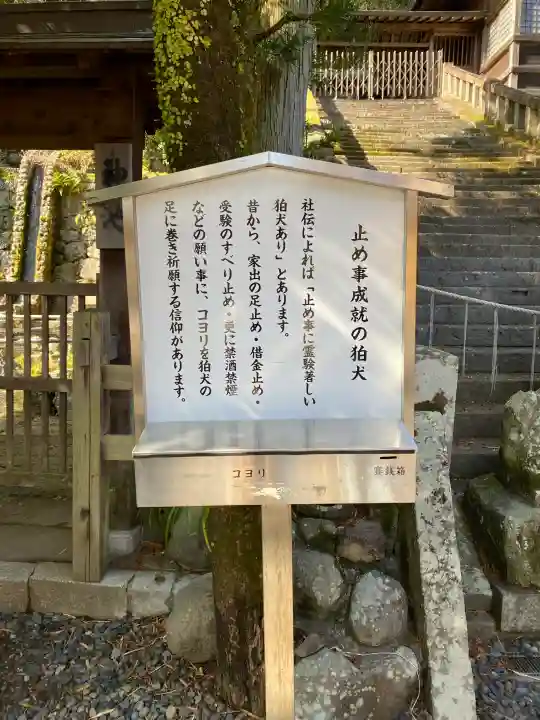 止め事成就の狛犬
社伝によれば「止め事に霊験著しい
狛犬あり」とあります。
昔から、家出の足止め・借金止め・
受験のすべり止め・更に禁酒禁煙
などの願い事に、コヨリを狛犬の
足に巻き祈願する信仰があります。
コヨリ
賽銭箱